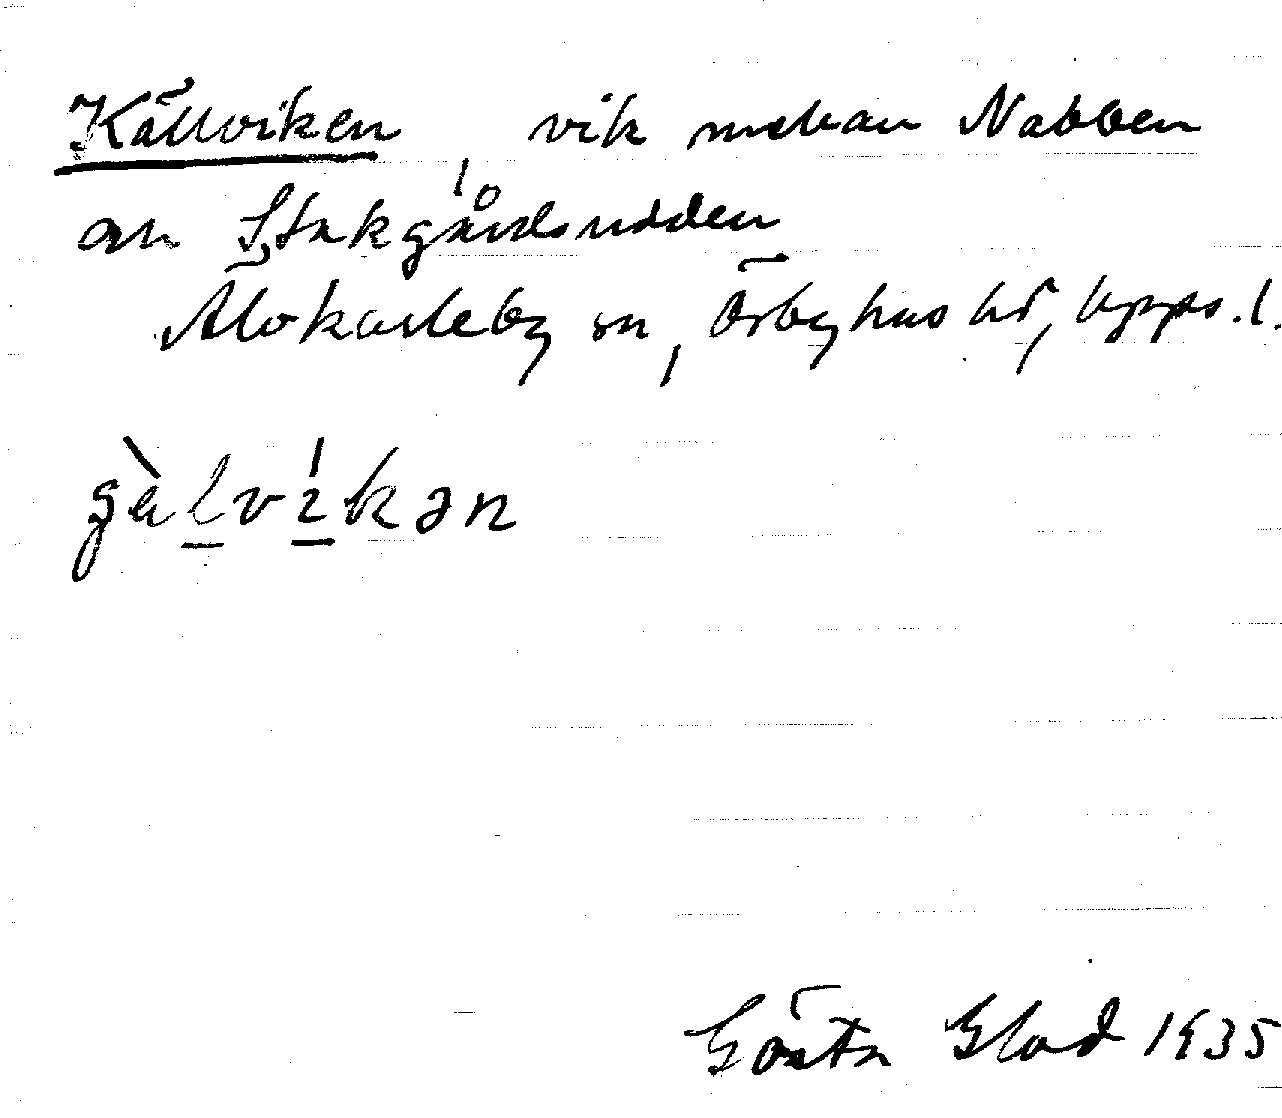 Källviken, vik mellan Nabben
och Stakgårdsudden
Älvkarleby sn, Örbyhus hd, Upps. l.
Gösta Blad 1935